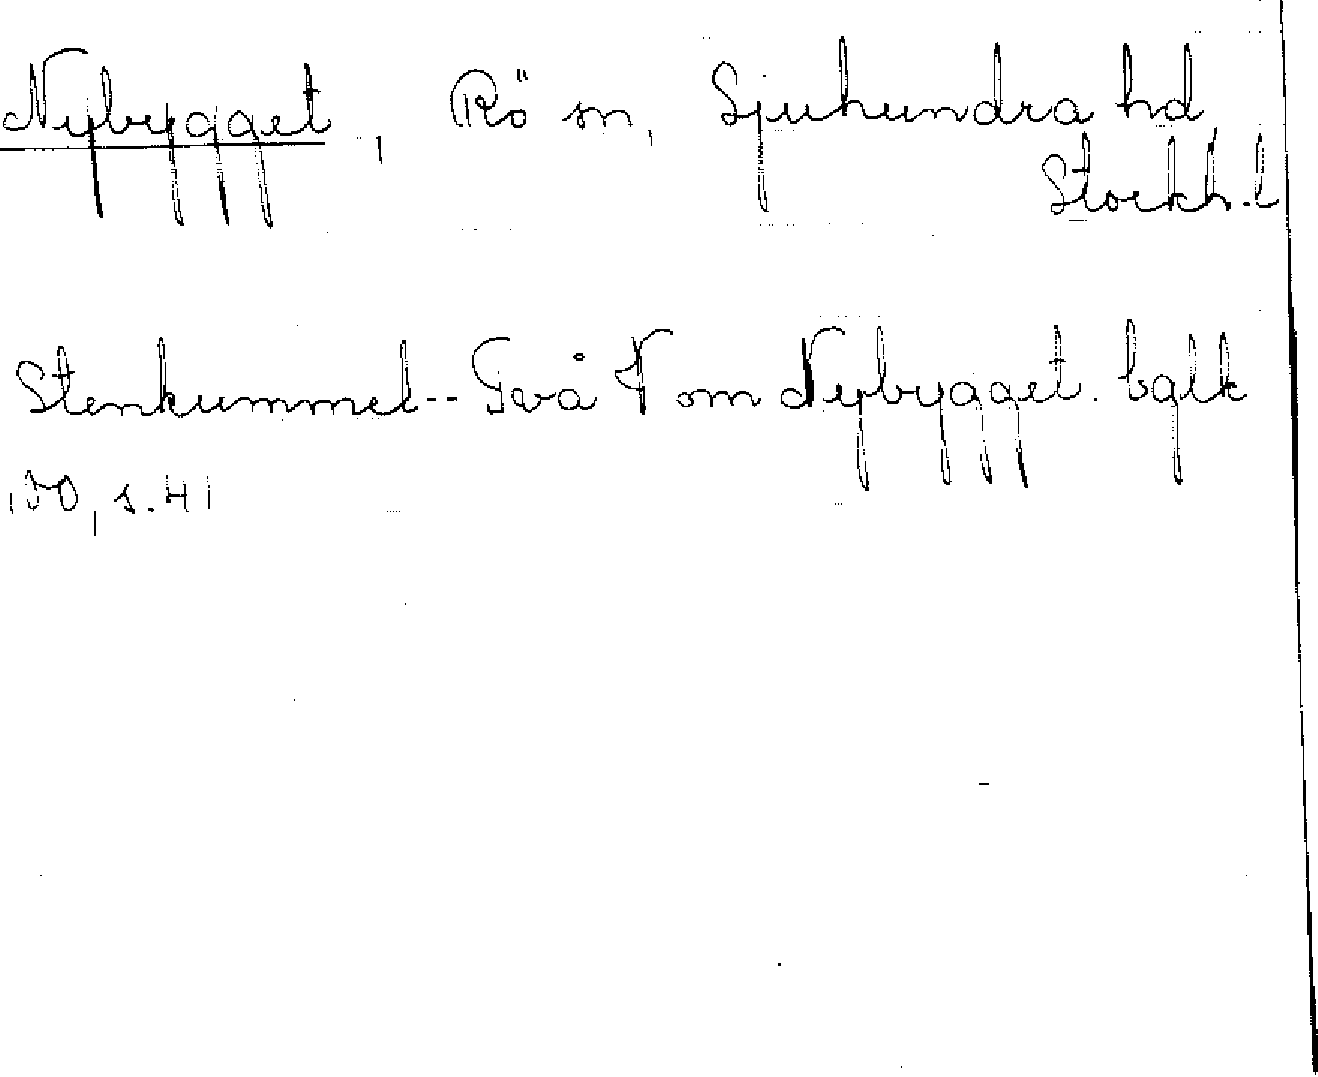 Nybygget, Rö sn, Sjuhundra hd
Stockh. l
Stenkummel-- Två V om Nybygget. bglk
s. 41